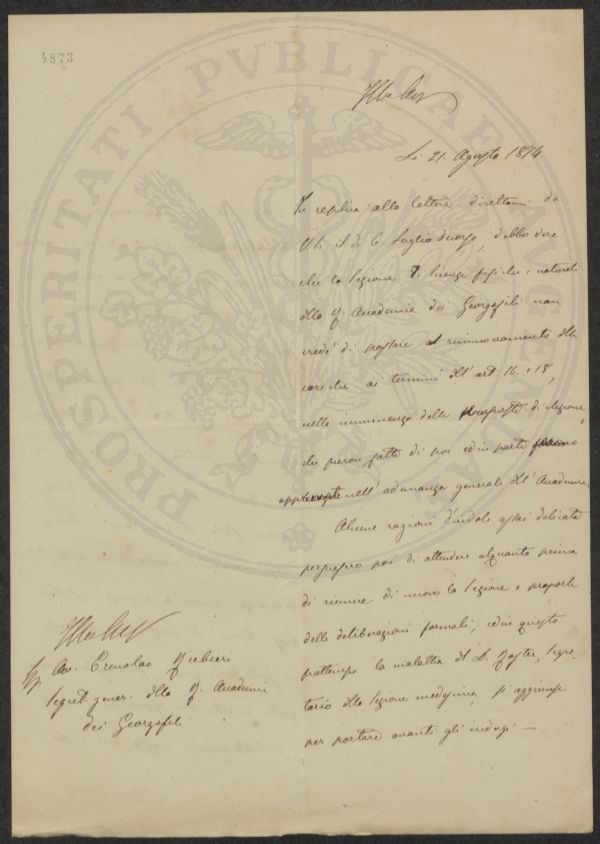 4873
PROSPERITATI PVBLICAE AVGENDAE
Li 21. Agosto 1874
In replica alla lettera direttami da
V.S. il dì 6. Luglio decorso, debbo dire
che la Sezione di Scienze fisiche e naturali
della R. Accademia dei Georgofili non
credé di passare al rinnovamento delle
cariche ai termini dell' art. 16. e 18,
nella imminenza delle proposte di elezione
che furon fatte di poi ed in parte
approvate nell' adunanza generale dell' Accademia.
Alcune ragioni d'indole assai delicata
persuasero poi di attendere alquanto prima
di riunire di nuovo la Sezione e proporle
delle deliberazioni formali, ed in questo
frattempo la malattia del D. segre
tario della Sezione medesima, si aggiunse
per portare avanti gli indugi —
Av.
Segret. gener. della R. Accademia
dei Georgofili